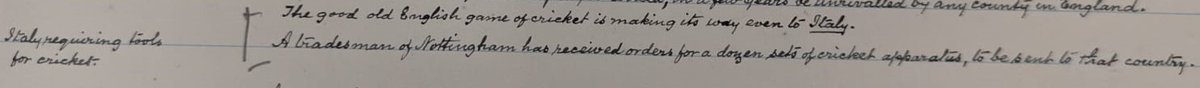 in a few years be unrivalled by any county in England.
The good old English game of cricket is making its way even to Italy.
Italy requiring tools
for cricket.
A tradesman of Nottingham has received orders for a dozen sets of cricket apparatus, to be sent to that country.